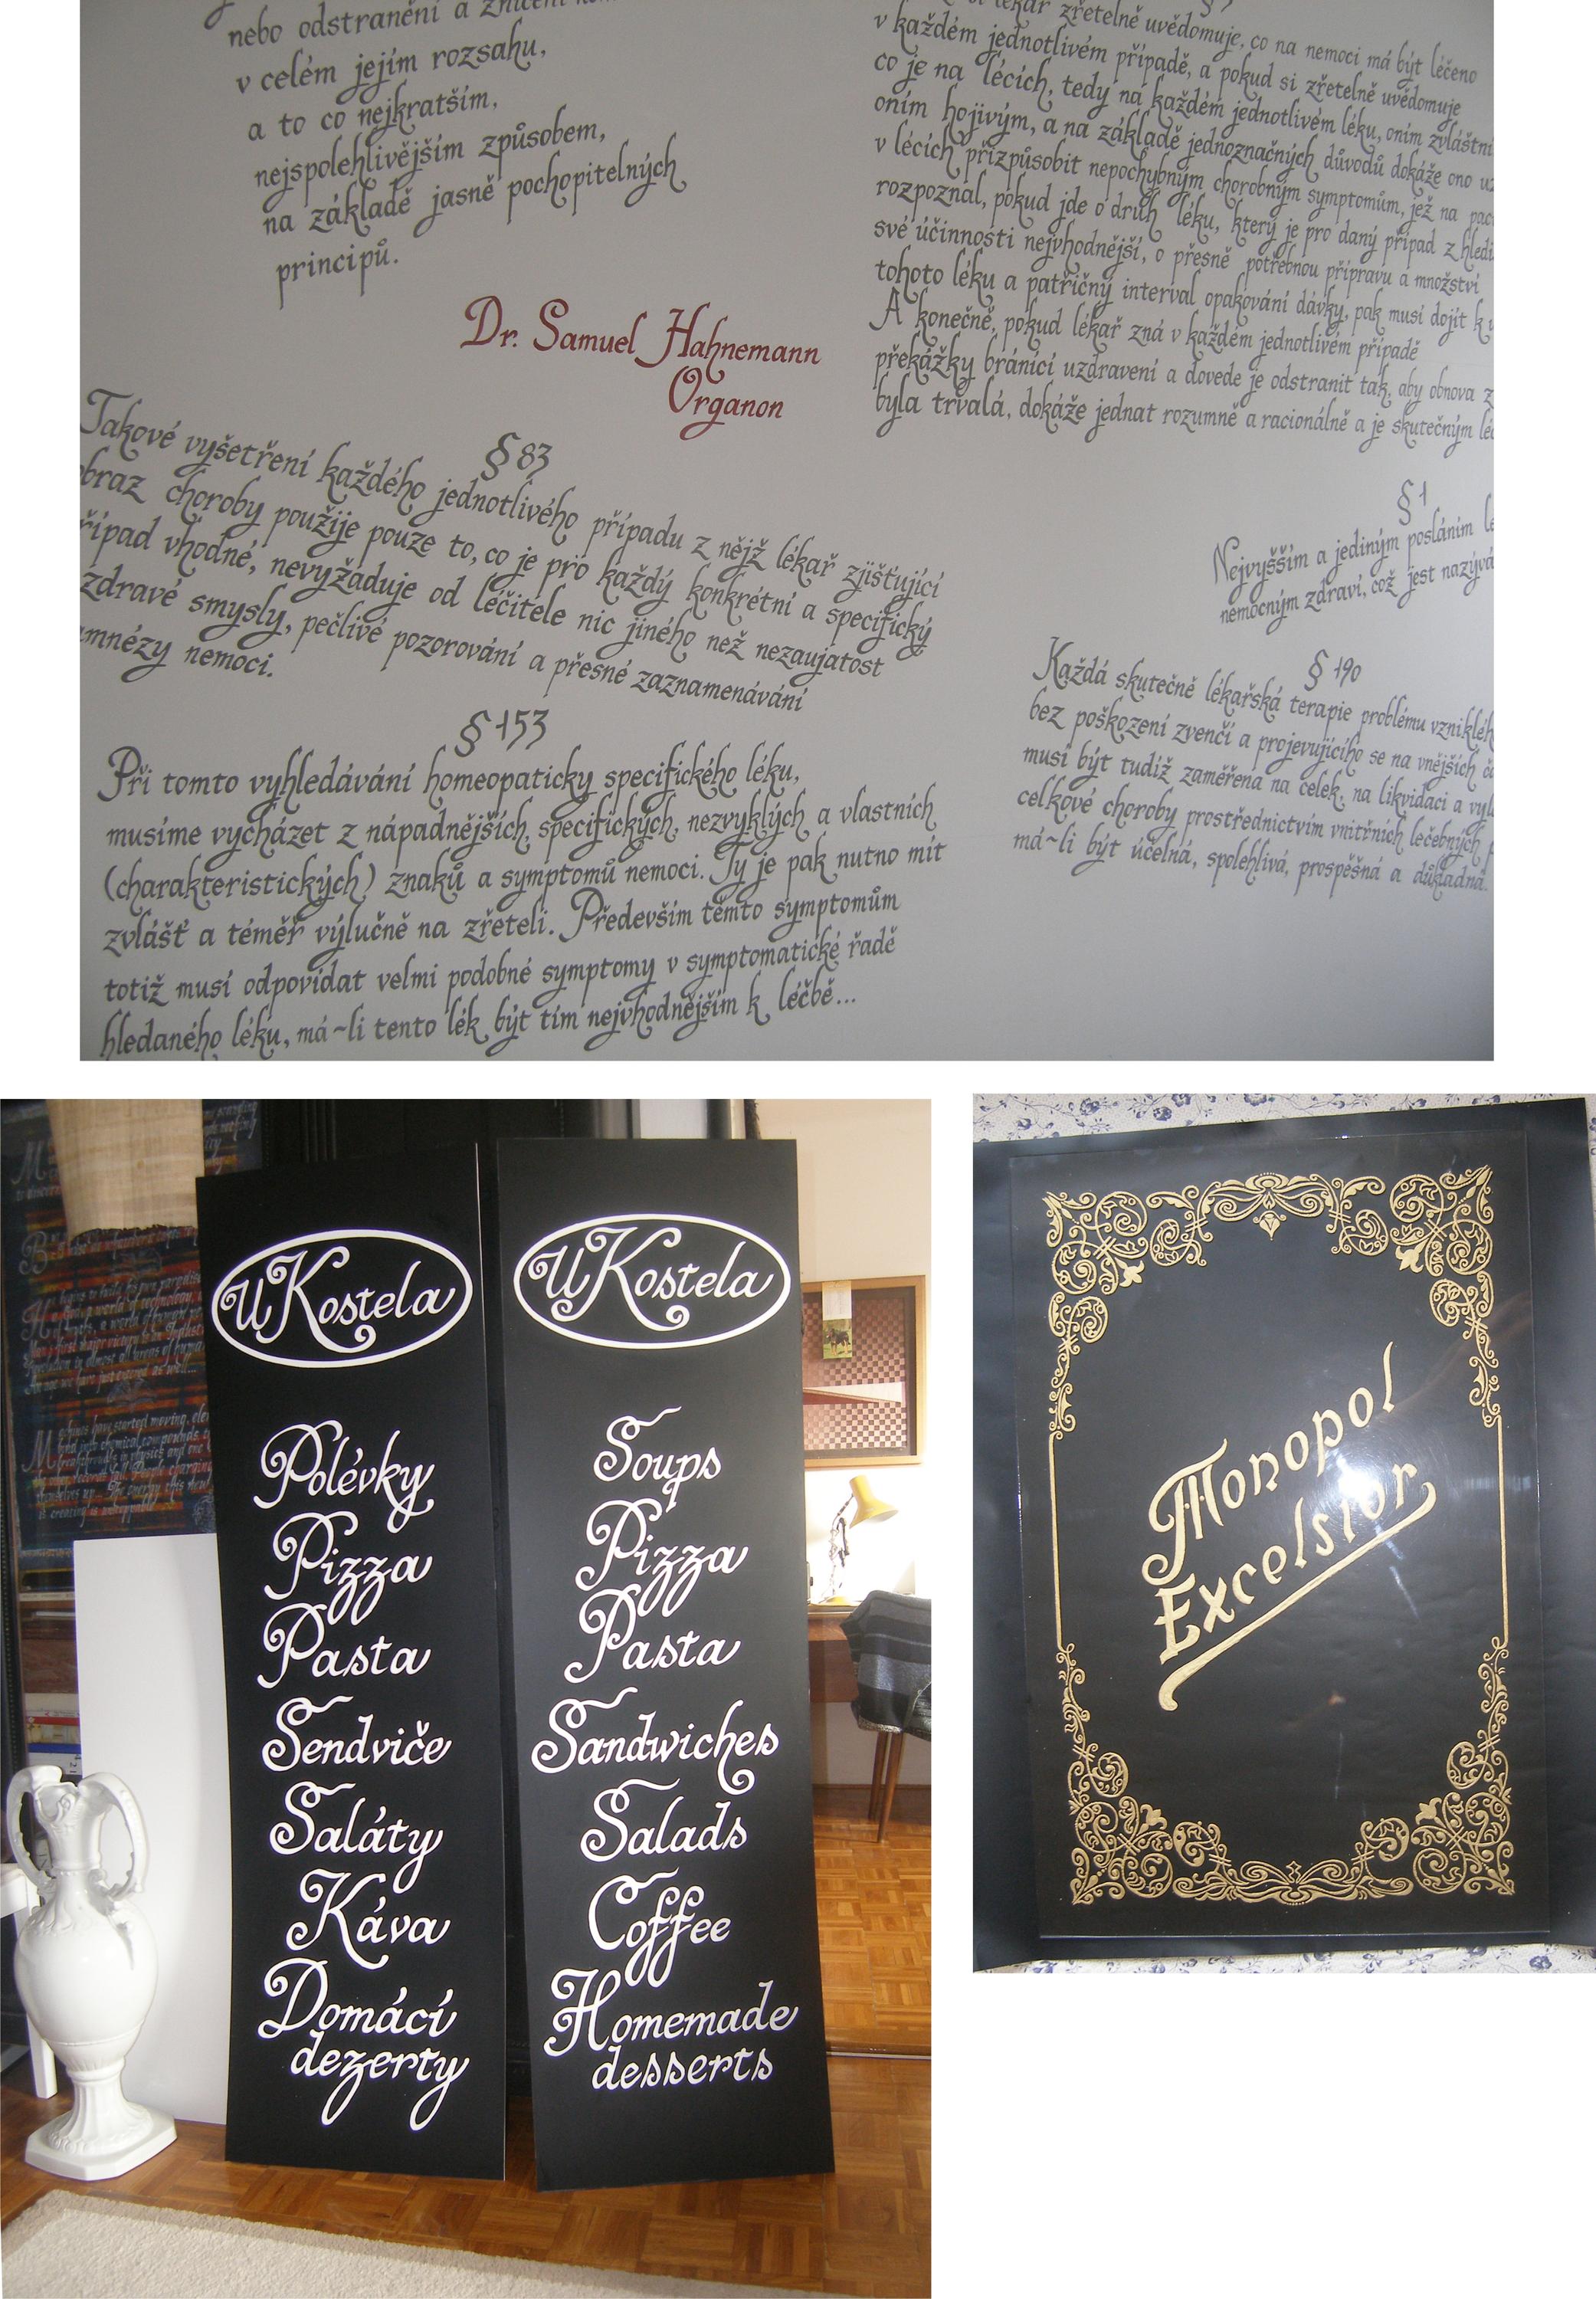 nebo odstranění a zničení
v celém jejím rozsahu,
a to co nejkratším,
nejspolehlivějším způsobem,
na základě jasně pochopitelných
principů.
Dr. Samuel Hahnemann
Organon
§ 83
Takové vyšetření každého jednotlivého případu z nějž lékař zjišťující
obraz choroby použije pouze to, co je pro každý konkrétní a specifický
řípad vhodné, nevyžaduje od léčitele nic jiného než nezaujatost
zdravé smysly, pečlivé pozorování a přesné zaznamenávání
mnézy nemoci.
§ 153
Při tomto vyhledávání homeopaticky specifického léku,
musíme vycházet z nápadnějších, specifických, nezvyklých a vlastních
(charakteristických) znaků a symptomů nemoci. Ty je pak nutno mít
zvlášť a téměř výlučně na zřeteli. Především těmto symptomům
totiž musí odpovídat velmi podobné symptomy v symptomatické řadě
hledaného léku, má~li tento lék být tím nejvhodnějším k léčbě...
lékař zřetelně uvědomuje, co na nemoci má být léčeno
v každém jednotlivém případě, a pokud si zřetelně uvědomuje
co je na lécích, tedy na každém jednotlivém léku, oním zvláštní
oním hojivým, a na základě jednoznačných důvodů dokáže ono
v lécích přizpůsobit nepochybným chorobným symptomům, jež na
rozpoznal, pokud jde o druh léku, který je pro daný případ z
své účinnosti nejvhodnější, o přesně potřebnou přípravu a množství
tohoto léku a patřičný interval opakování dávky, pak musí dojít k
A konečně, pokud lékař zná v každém jednotlivém případě
překážky bránící uzdravení a dovede je odstranit tak, aby obnova
byla trvalá, dokáže jednat rozumně a racionálně a je skutečným
§ 1
Nejvyšším a jediným posláním
nemocným zdraví, což jest
§ 190
Každá skutečně lékařská terapie problému
bez poškození zvenčí a projevujícího se na vnějších
musí být tudíž zaměřena na celek, na likvidaci a
celkové choroby prostřednictvím vnitřních léčebných
má~li být účelná, spolehlivá, prospěšná a důkladná.
U Kostela
Polévky
Pizza
Pasta
Sendviče
Saláty
Káva
Domácí
dezerty
U Kostela
Soups
Pizza
Pasta
Sandwiches
Salads
Coffee
Homemade
desserts
Monopol
Excelsior